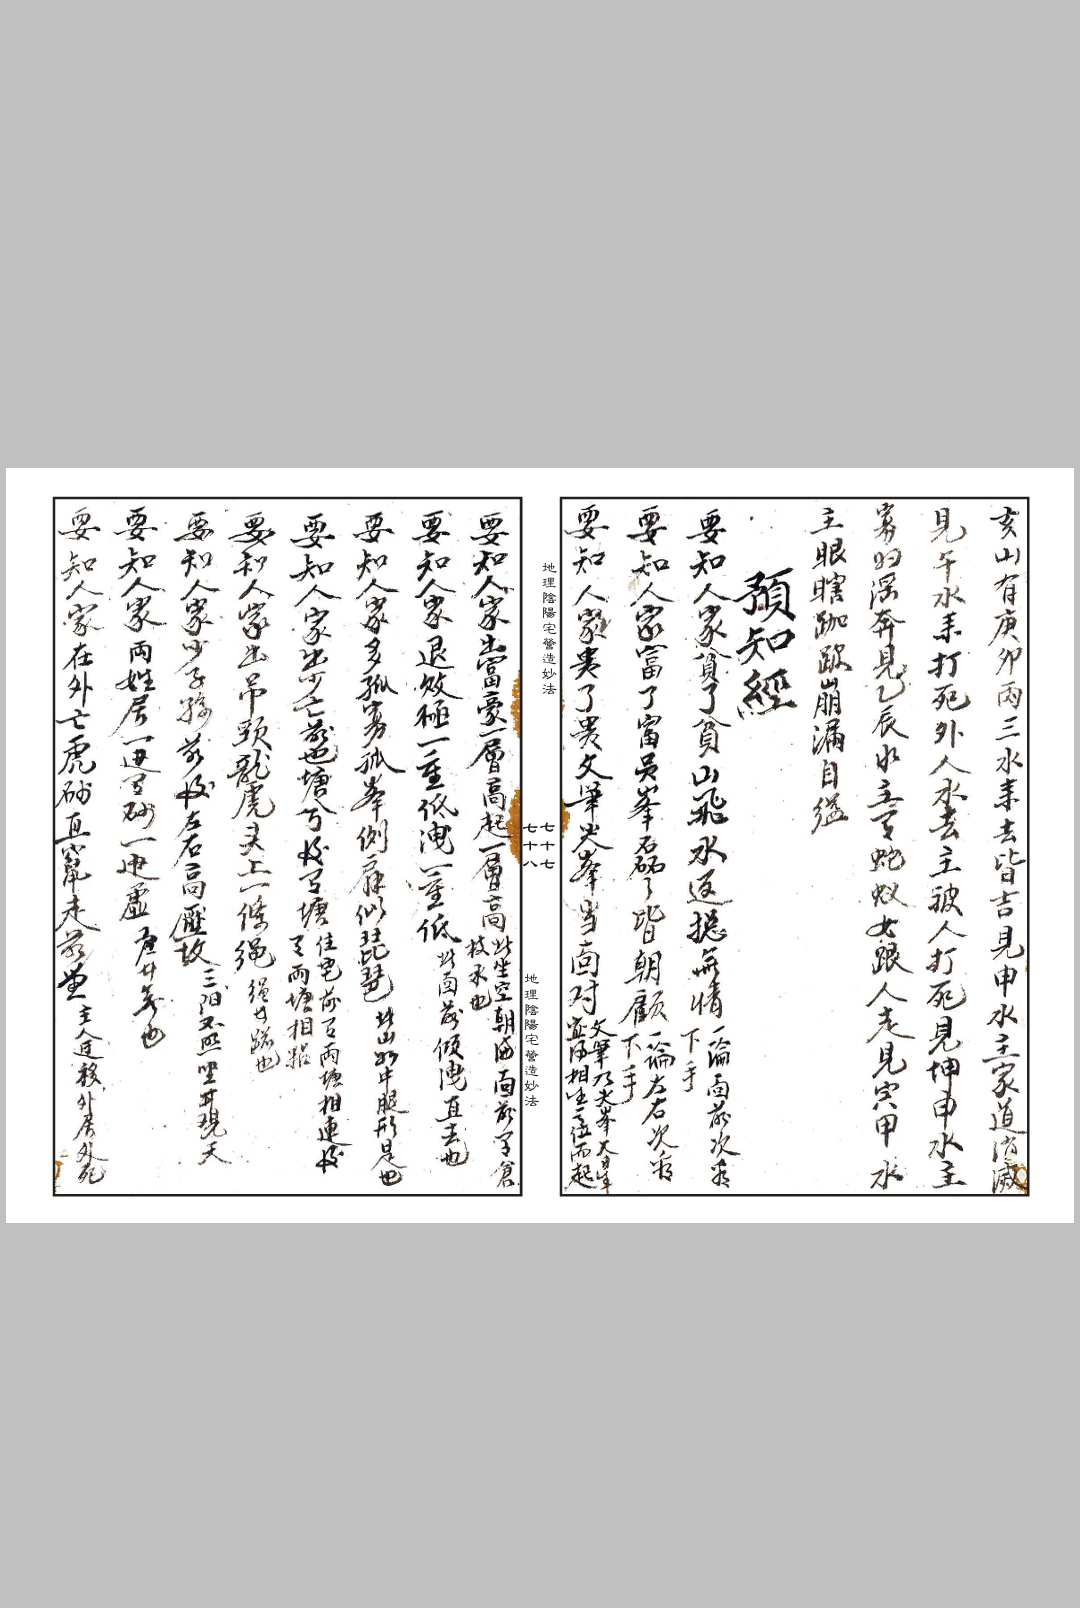 亥山有庚卯丙三水来去皆吉見申水主家道消滅
見午水来打死外人水去主被人打死見坤申水主
寡婦淫奔見乙辰水主了蛇蚁女跟人走見寅甲水
主眼瞎跏跛崩漏自缢
預知經
要知人家貧了貧山飛水返揔無情
一論面前次看
下手
要知人家富了富員峯磊了皆朝顧
一論左右次看
下手
要知人家贵了贵文筆尖峯当面对
文筆乃尖峯
相生
而起
地理陰陽宅營造妙法
七十七
七十八
地理陰陽宅營造妙法
要知人家出富豪一層高起一層高
此坐空朝 面前有倉
技承也
要知人家退敗極一重低洩一重低
此面前傾洩直去也
要知人家多孤寡孤峯側扉似琵琶
此山如牛腿形是也
要知人家出少亡前也塘兮後有塘
住宅前有兩塘相連後
有兩塘相
要知人家出吊頸龍虎头上一條绳
绳 路也
要知人家少子孫前後左右高壓故
三陽不照坐井現天
要知人家兩姓居一边有砂一边虚
要知人家在外亡虎砂直竄走前堂
主人迁移外居外死